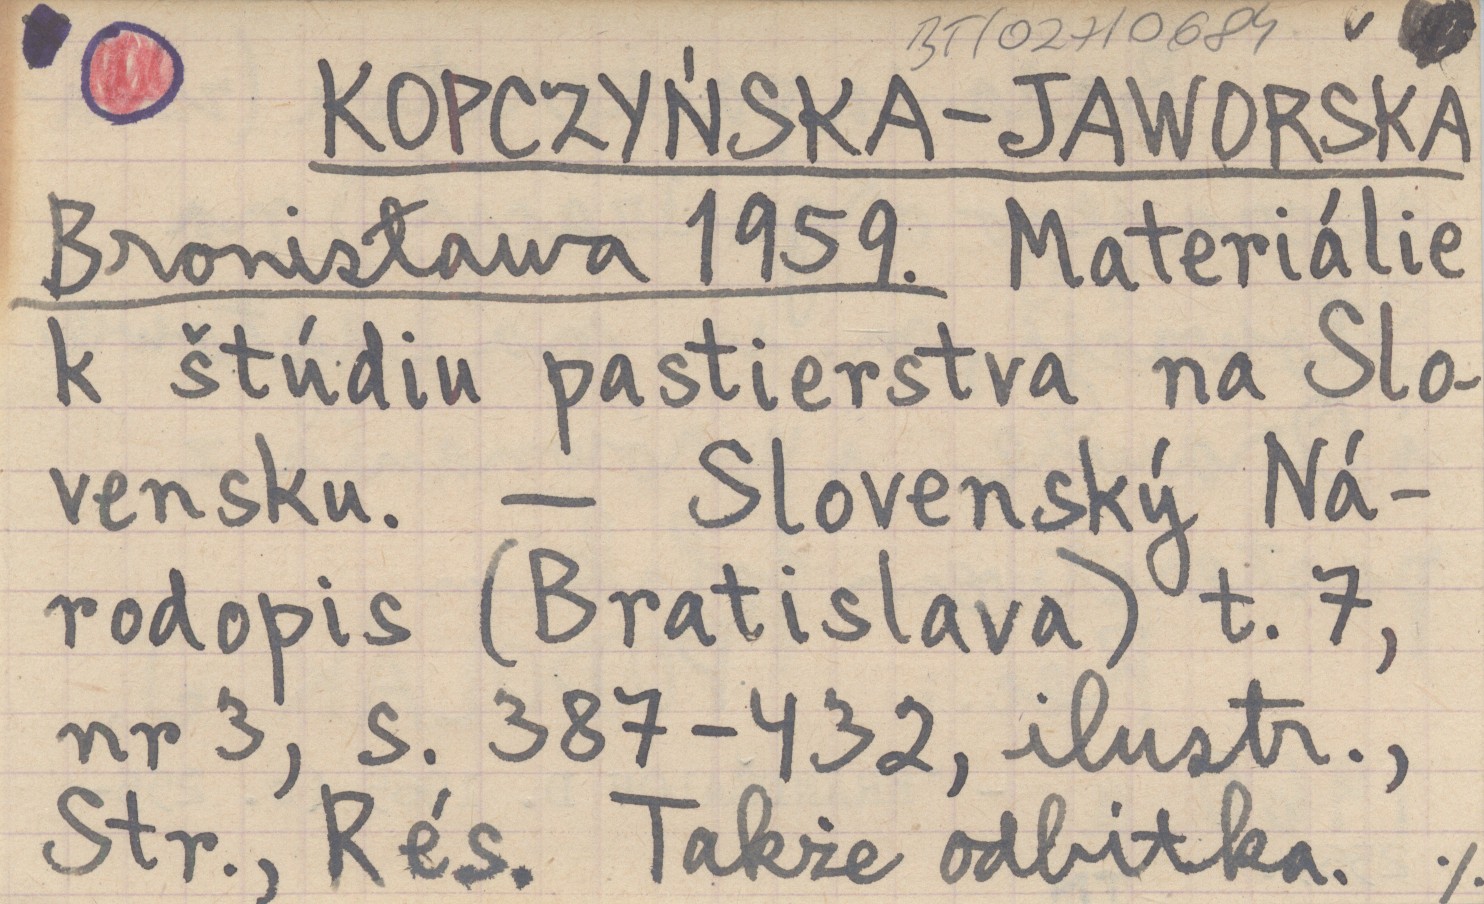 BT/027/0684
KOPCZYŃSKA-JAWORSKA
Bronisława 1959. Materiálie
k štúdiu pastierstva na Slo-
vensku. — Slovenský Ná-
rodopis (Bratislava) t. 7,
nr 3, s. 387-432, ilustr.,
Str., Rés. Także odbitka. ./.